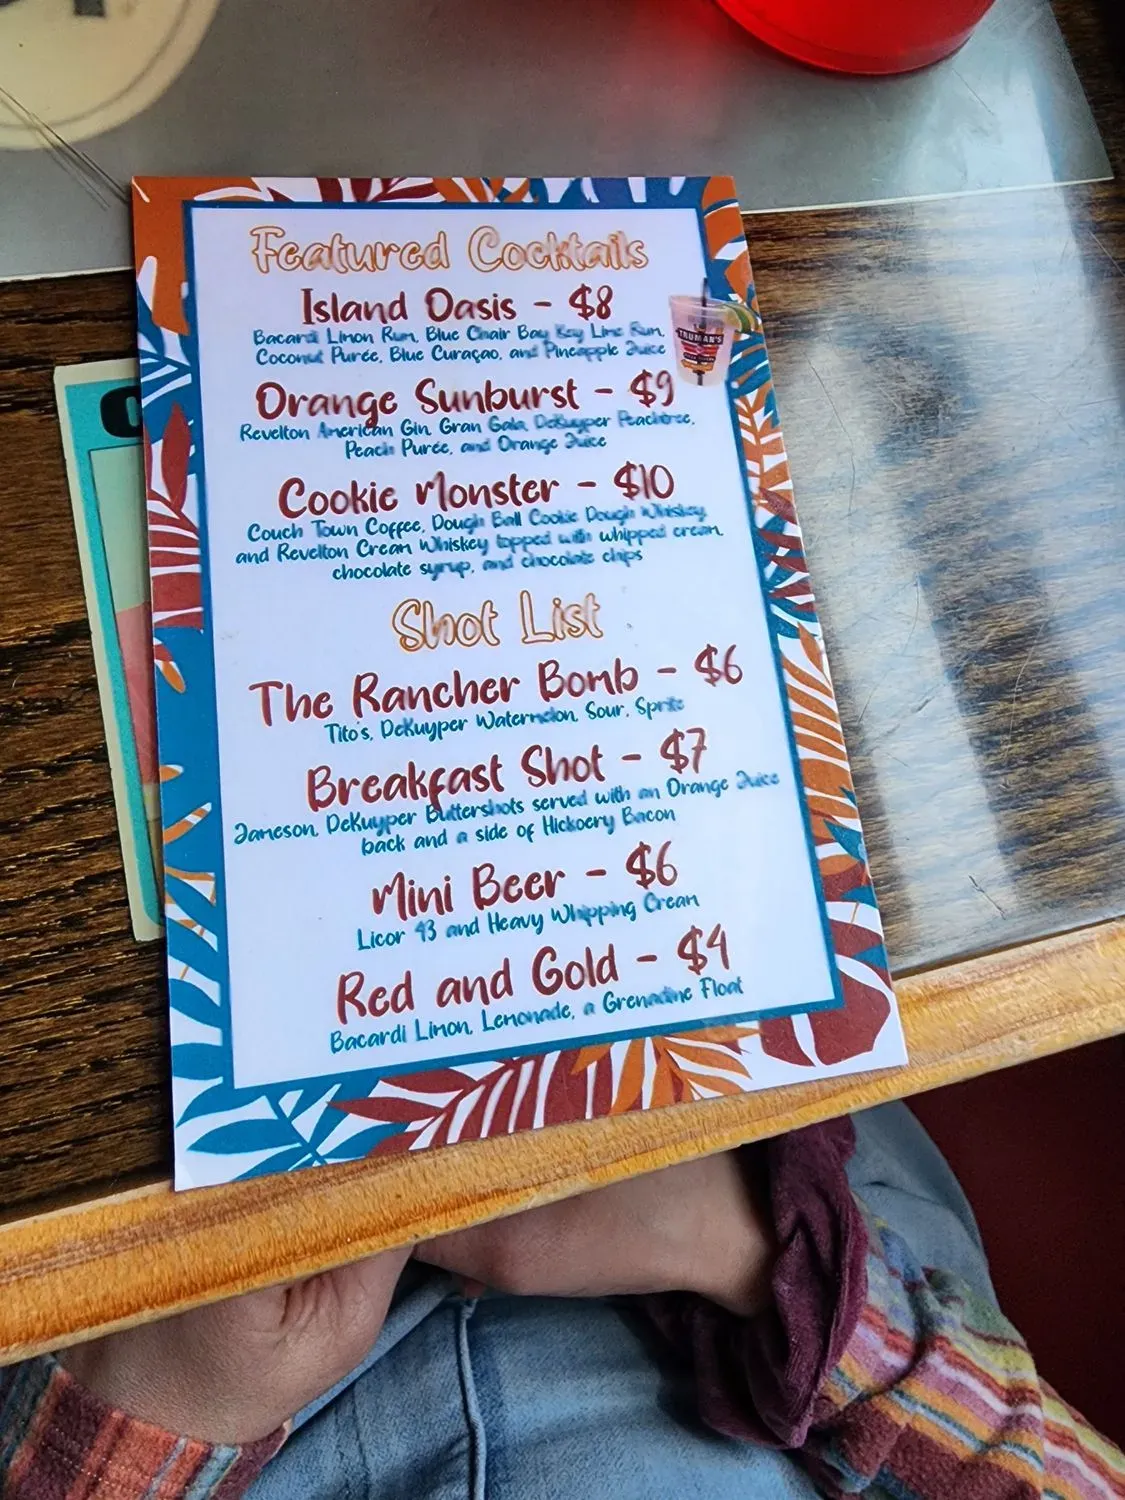 Featured Cocktails
Island Oasis - $8
Bacardi Limon Rum, Blue Chair Bay Key Lime Rum,
Coconut Purée, Blue Curaçao, and Pineapple Juice
TRUMAN'S
Orange Sunburst - $9
Revelton American Gin, Gran Gala, DeKuyper Peachtree,
Peach Purée, and Orange Juice
Cookie Monster - $10
Couch Town Coffee, Dough Ball Cookie Dough Whiskey,
and Revelton Cream Whiskey topped with whipped cream,
chocolate syrup, and chocolate chips
Shot List
The Rancher Bomb - $6
Tito's, DeKuyper Watermelon, Sour, Sprite
Breakfast Shot - $7
Jameson, DeKuyper Buttershots served with an Orange Juice
back and a side of Hickoery Bacon
Mini Beer - $6
Licor 43 and Heavy Whipping Cream
Red and Gold - $4
Bacardi Limon, Lemonade, a Grenadine Float